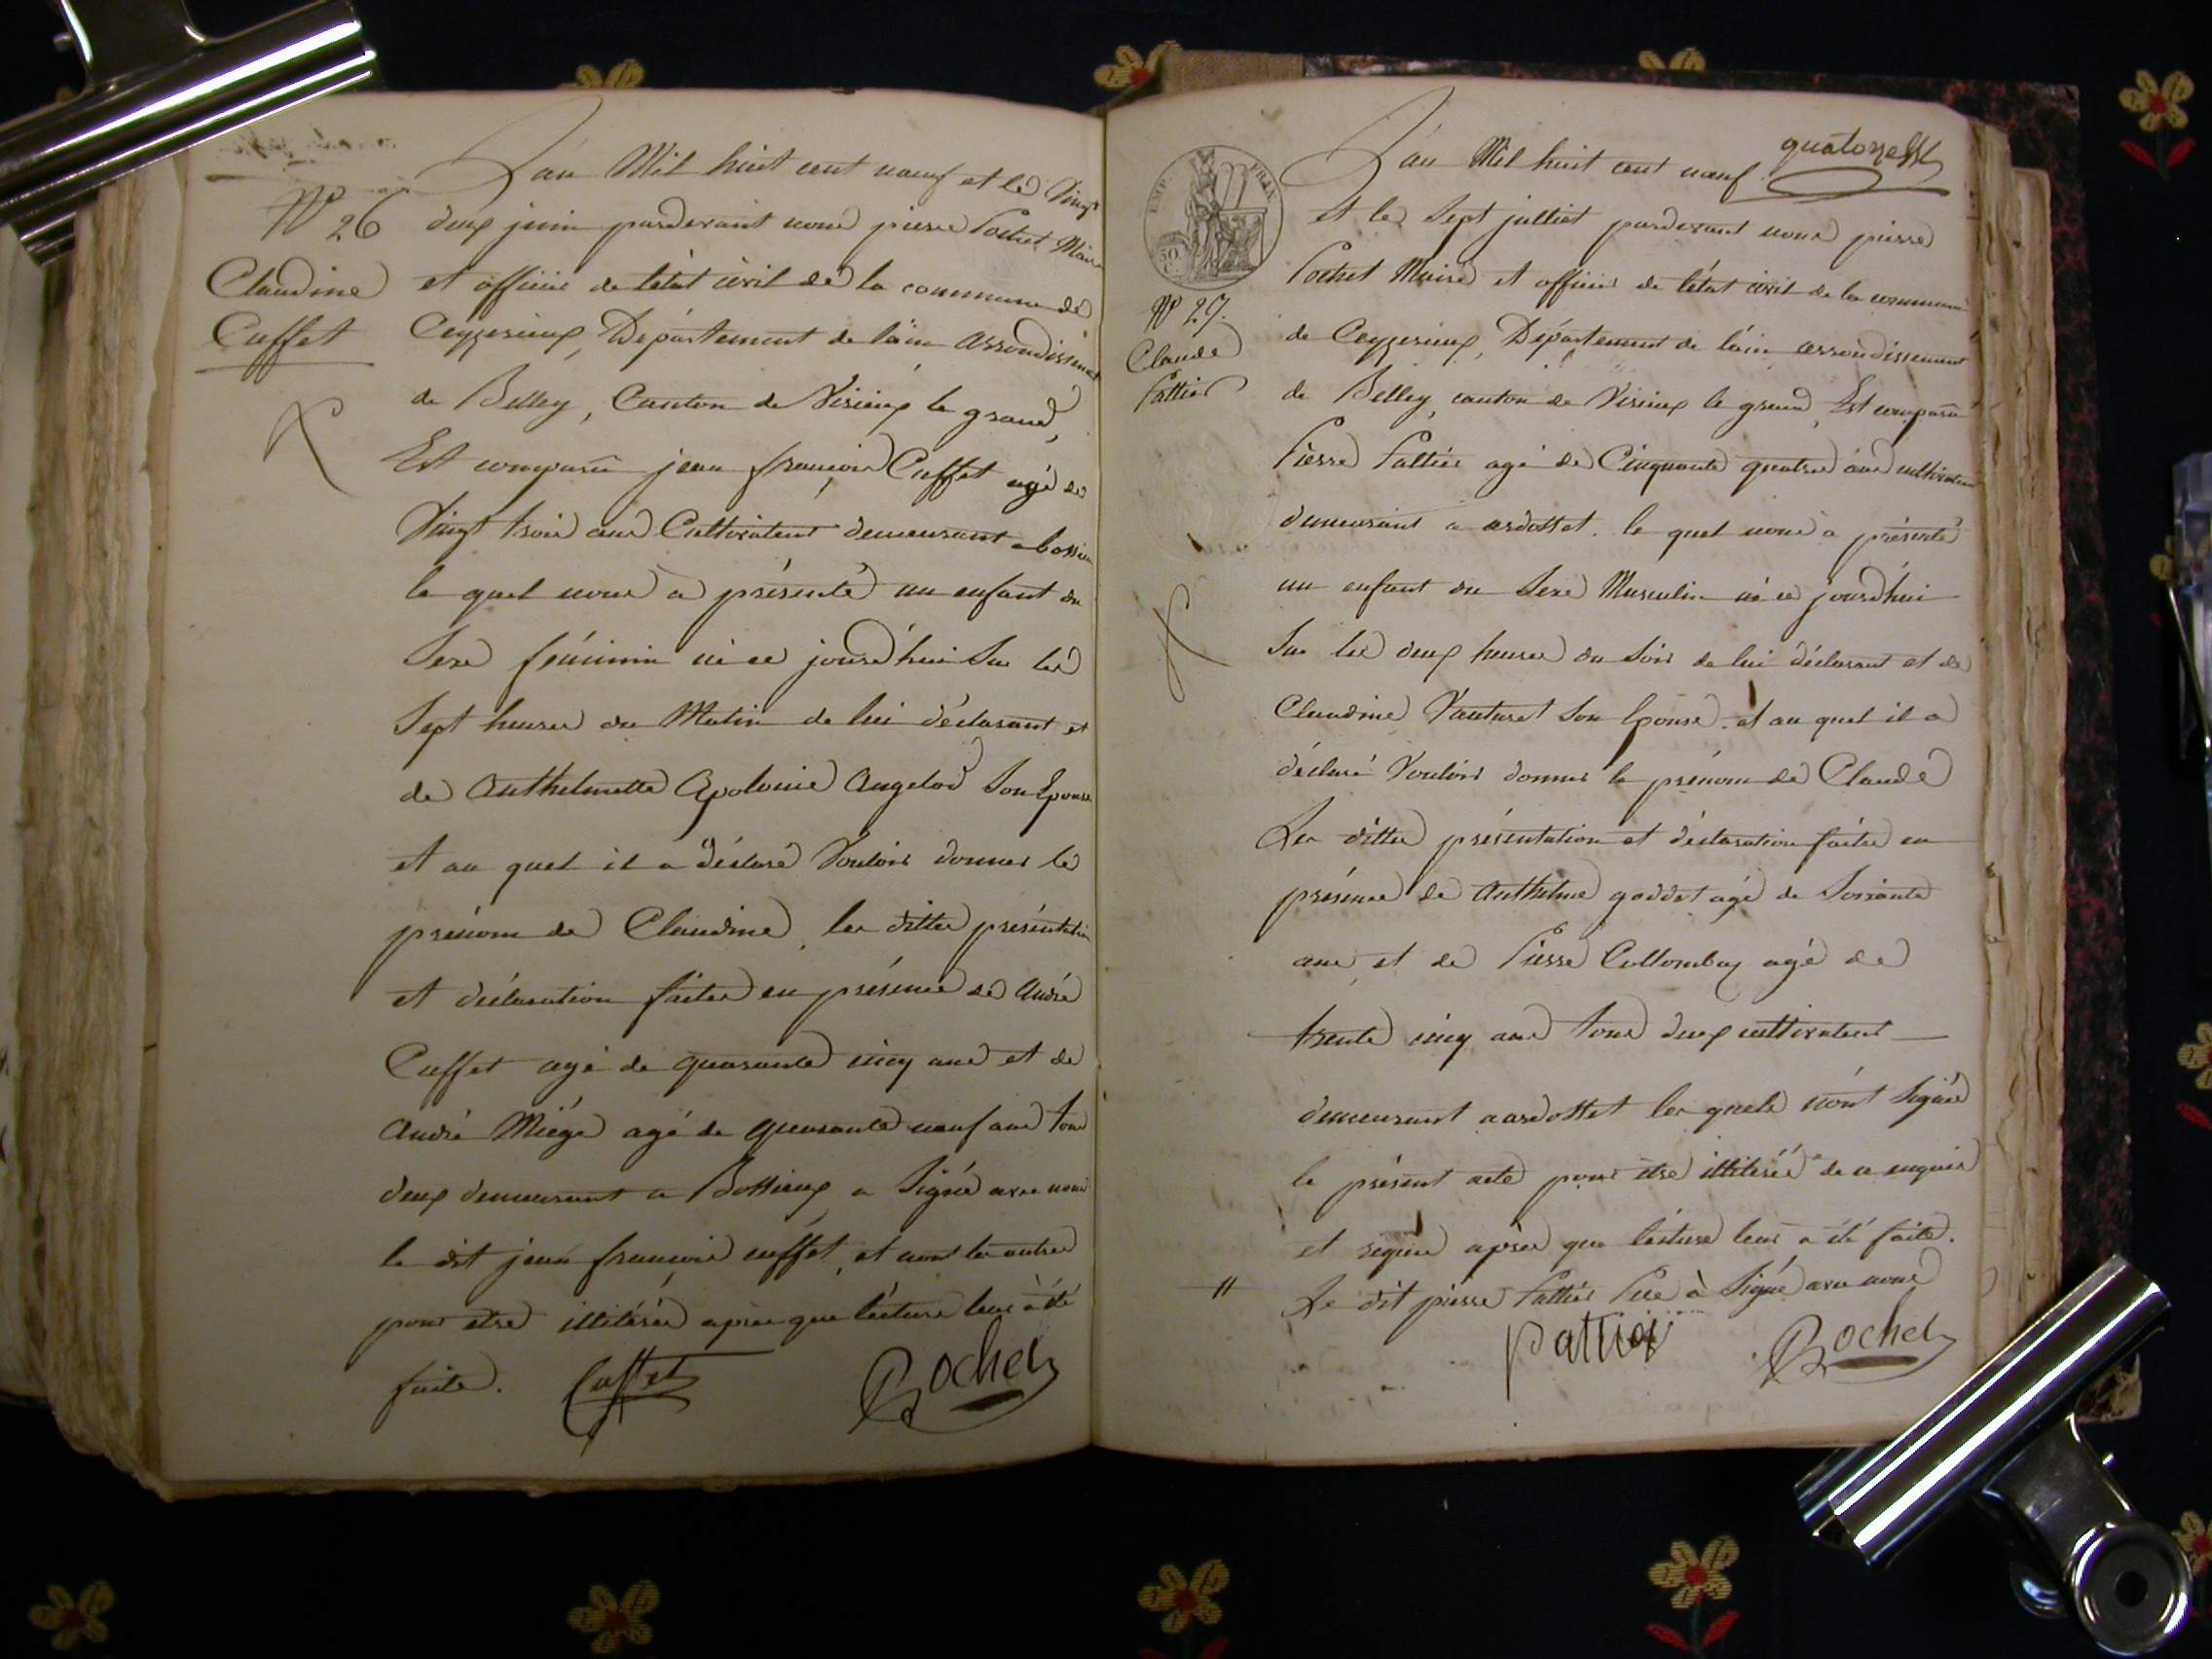 N° 26
Claudine
Cuffet
L'an Mil huit cent neuf et le Vingt
deux juin pardevant nous pierre Pochet Maire
et officier de l'état civil de la commune de
Ceyzerieux, Département de l'ain arrondissement
de Belley, Canton de Virieux le grand,
Est comparu jean françois Cuffet agé de
Vingt trois ans Cultivateur demeurant a bossieu
le quel nous a présenté un enfant du
Sexe féminin né ce jourd'hui Sur les
Sept heures du Matin de lui déclarant et
de Anthelmette Apolonie Angelod Son Epouse
et au quel il a déclaré Vouloir donner le
prénom de Claudine, les dittes présentation
et déclaration faites en présence de André
Cuffet agé de quarante cinq ans et de
André Miége agé de quarante neuf ans tous
deux demeurant a Bossieux a Signé avec nous
le dit jean françois cuffet, et non les autres
pour etre illitérés après que lecture leur a été
faite. Cuffet Pochet
quatorze
EMP. FRAN.
50 C.
N° 27.
Claude
Pattier
L'an Mil huit cent neuf
et le Sept julliet pardevant nous pierre
Pochet Maire et officier de l'état civil de la commune
de Ceyzerieux, Département de l'ain arrondissement
de Belley, canton de Virieux le grand, Est comparu
Pierre Pattier agé de Cinquante quatre ans cultivateur
demeurant a ardosset. le quel nous a présenté
un enfant du Sexe Masculin né ce jourd'hui
Sur les deux heures du Soir de lui déclarant et de
Claudine Vauturet Son Epouse. et au quel il a
déclaré Vouloir donner le prénom de Claude
Les dittes présentation et déclaration faites en
présence de Anthelme goddet agé de Soixante
ans et de Pierre Collomba agé de
trente cinq ans tous deux cultivateur
demeurant a ardosset les quels n'ont Signés
le présent acte pour etre illitérés de ce enquis
et requis après que lecture leur a été faite.
Le dit pierre Pattier Père à Signé avec nous
pattier Pochet